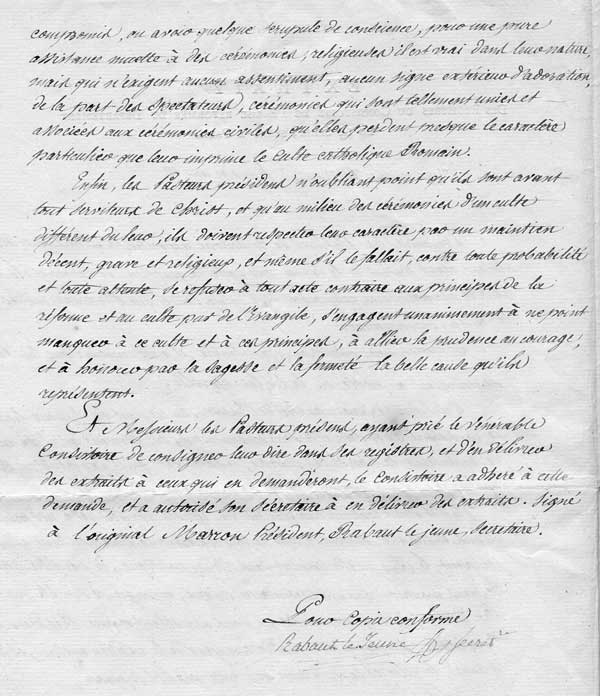 compromis, ou avoir quelque scrupule de conscience, pour une pure
assistance muette à des cérémonies, religieuses il est vrai dans leur nature,
mais qui n'exigent aucun assentiment, aucun signe extérieur d'adoration,
de la part des spectateurs, cérémonies qui sont tellement unies et
associées aux cérémonies civiles, qu'elles perdent presque le caractère
particulier que leur imprime le culte catholique Romain.
Enfin, les Pasteurs présidens n'oubliant point qu'ils sont avant
tout serviteurs de Christ, et qu'au milieu des cérémonies d'un culte
différent du leur, ils doivent respecter leur caractère par un maintien
décent, grave et religieux, et même s'il le fallait, contre toute probabilité
et toute attente, se refuser à tout acte contraire aux principes de la
réforme et au culte pur de l'Evangile, s'engagent unanimement à ne point
manquer à ce culte et à ces principes, à allier la prudence au courage,
et à honorer par la sagesse et la fermeté la belle cause qu'ils
représentent.
Et Messieurs les Pasteurs présens, ayant prié le vénérable
Consistoire de consigner leur dire dans ses registres, et d'en délivrer
des extraits à ceux qui en demanderont, le Consistoire a adhéré à cette
demande, et a autorisé son secrétaire à en délivrer des extraits. Signé
à l'original Marron Président, Rabaut le jeune, secrétaire.
Pour copie conforme
Rabaut le Jeune secret^r